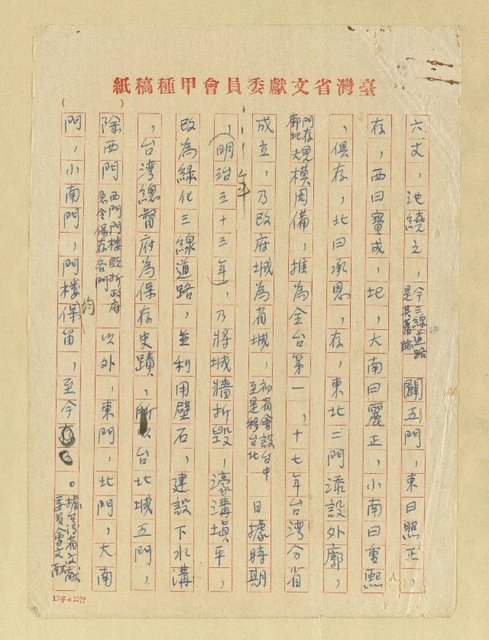 臺灣省文獻委員會甲種稿紙
六丈，池繞之，今三線道路是其舊跡 闢五門，東曰照正，
存，西曰寶成，圮，大南曰麗正，小南曰重熙
，俱存，北曰承恩，存，東北二門添設外廓，
規模周備，推為全台第一，十七年台灣分省
成立，乃改府城為省城，初省會設台中至是移台北 日據時期
，（明治三十三年），乃將城牆折毀，濠溝塡平，
改為綠化三線道路，並利用壁石，建設下水溝
，台灣總督府為保存史蹟，台北城五門，
除西門 西門門樓毀折政府急令保存各門 以外，東門，北門，大南
門，小南門，門樓均保留，至今。據台湾省文獻委員會文獻